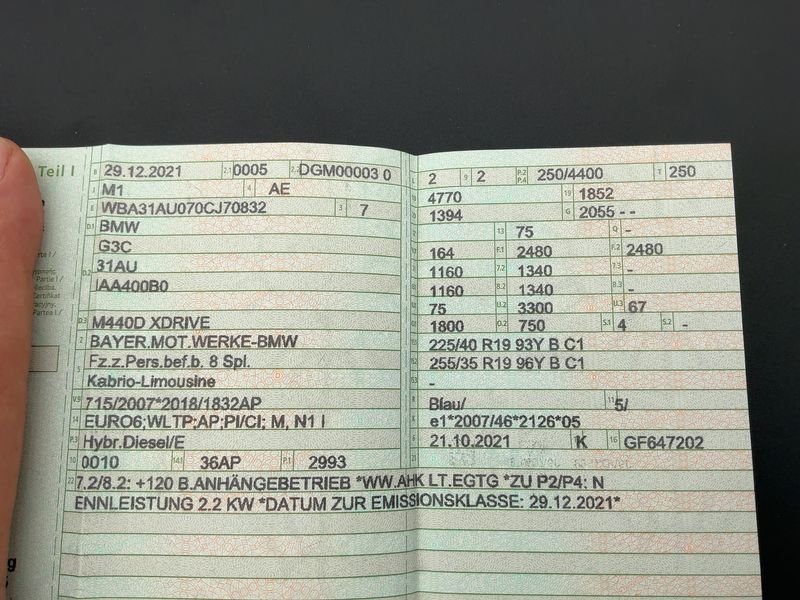 Teil I
B 29.12.2021 2.1 0005 2.2 DGM00003 0
J M1 4 AE
E WBA31AU070CJ70832 3 7
D.1 BMW
G3C
D.2 31AU
IAA400B0
D.3 M440D XDRIVE
2 BAYER.MOT.WERKE-BMW
5 Fz.z.Pers.bef.b. 8 Spl.
Kabrio-Limousine
V.9 715/2007*2018/1832AP
14 EURO6;WLTP;AP;PI/CI; M, N1 I
P.3 Hybr.Diesel/E
10 0010 14.1 36AP P.1 2993
L 2 9 2 P.2 P.4 250/4400 T 250
18 4770 19 1852
20 1394 G 2055 - -
12 - 13 75 Q -
V.7 164 F.1 2480 F.2 2480
7.1 1160 7.2 1340 7.3 -
8.1 1160 8.2 1340 8.3 -
U.1 75 U.2 3300 U.3 67
O.1 1800 O.2 750 S.1 4 S.2 -
15.1 225/40 R19 93Y B C1
15.2 255/35 R19 96Y B C1
15.3 -
R Blau/ 11 5/
K e1*2007/46*2126*05
6 21.10.2021 17 K 16 GF647202
21
22 7.2/8.2: +120 B.ANHÄNGEBETRIEB *WW.AHK LT.EGTG *ZU P2/P4: N
ENNLEISTUNG 2.2 KW *DATUM ZUR EMISSIONSKLASSE: 29.12.2021*